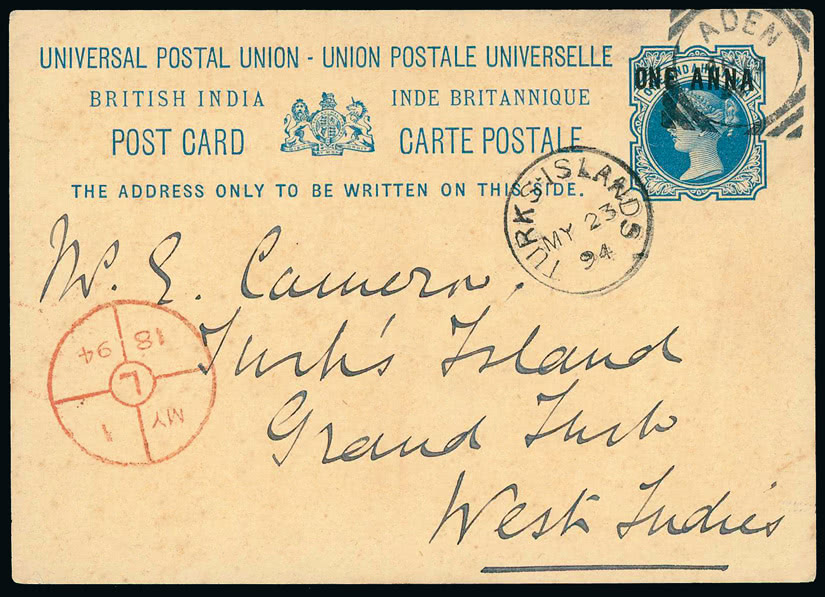 ADEN
UNIVERSAL POSTAL UNION - UNION POSTALE UNIVERSELLE
BRITISH INDIA INDE BRITANNIQUE
POST CARD CARTE POSTALE
THE ADDRESS ONLY TO BE WRITTEN ON THIS SIDE.
ONE ANNA
TURKS ISLANDS
MY 23
94
Mr. E. Cameron,
Turk's Island
Grand Turk
West Indies
18
94
L
MY
1